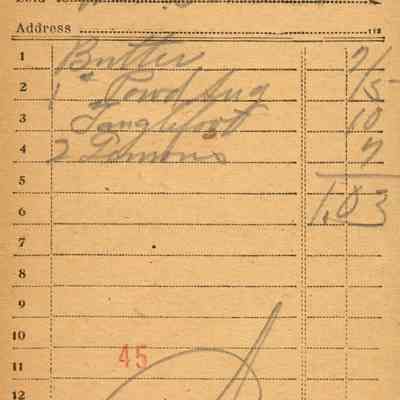 Address
1 Butter
2 1 " Powd Sug 15
3 Tanglefoot 10
4 2 Lemons 7
5
6 1.03
7
8
9
10
11 45
12